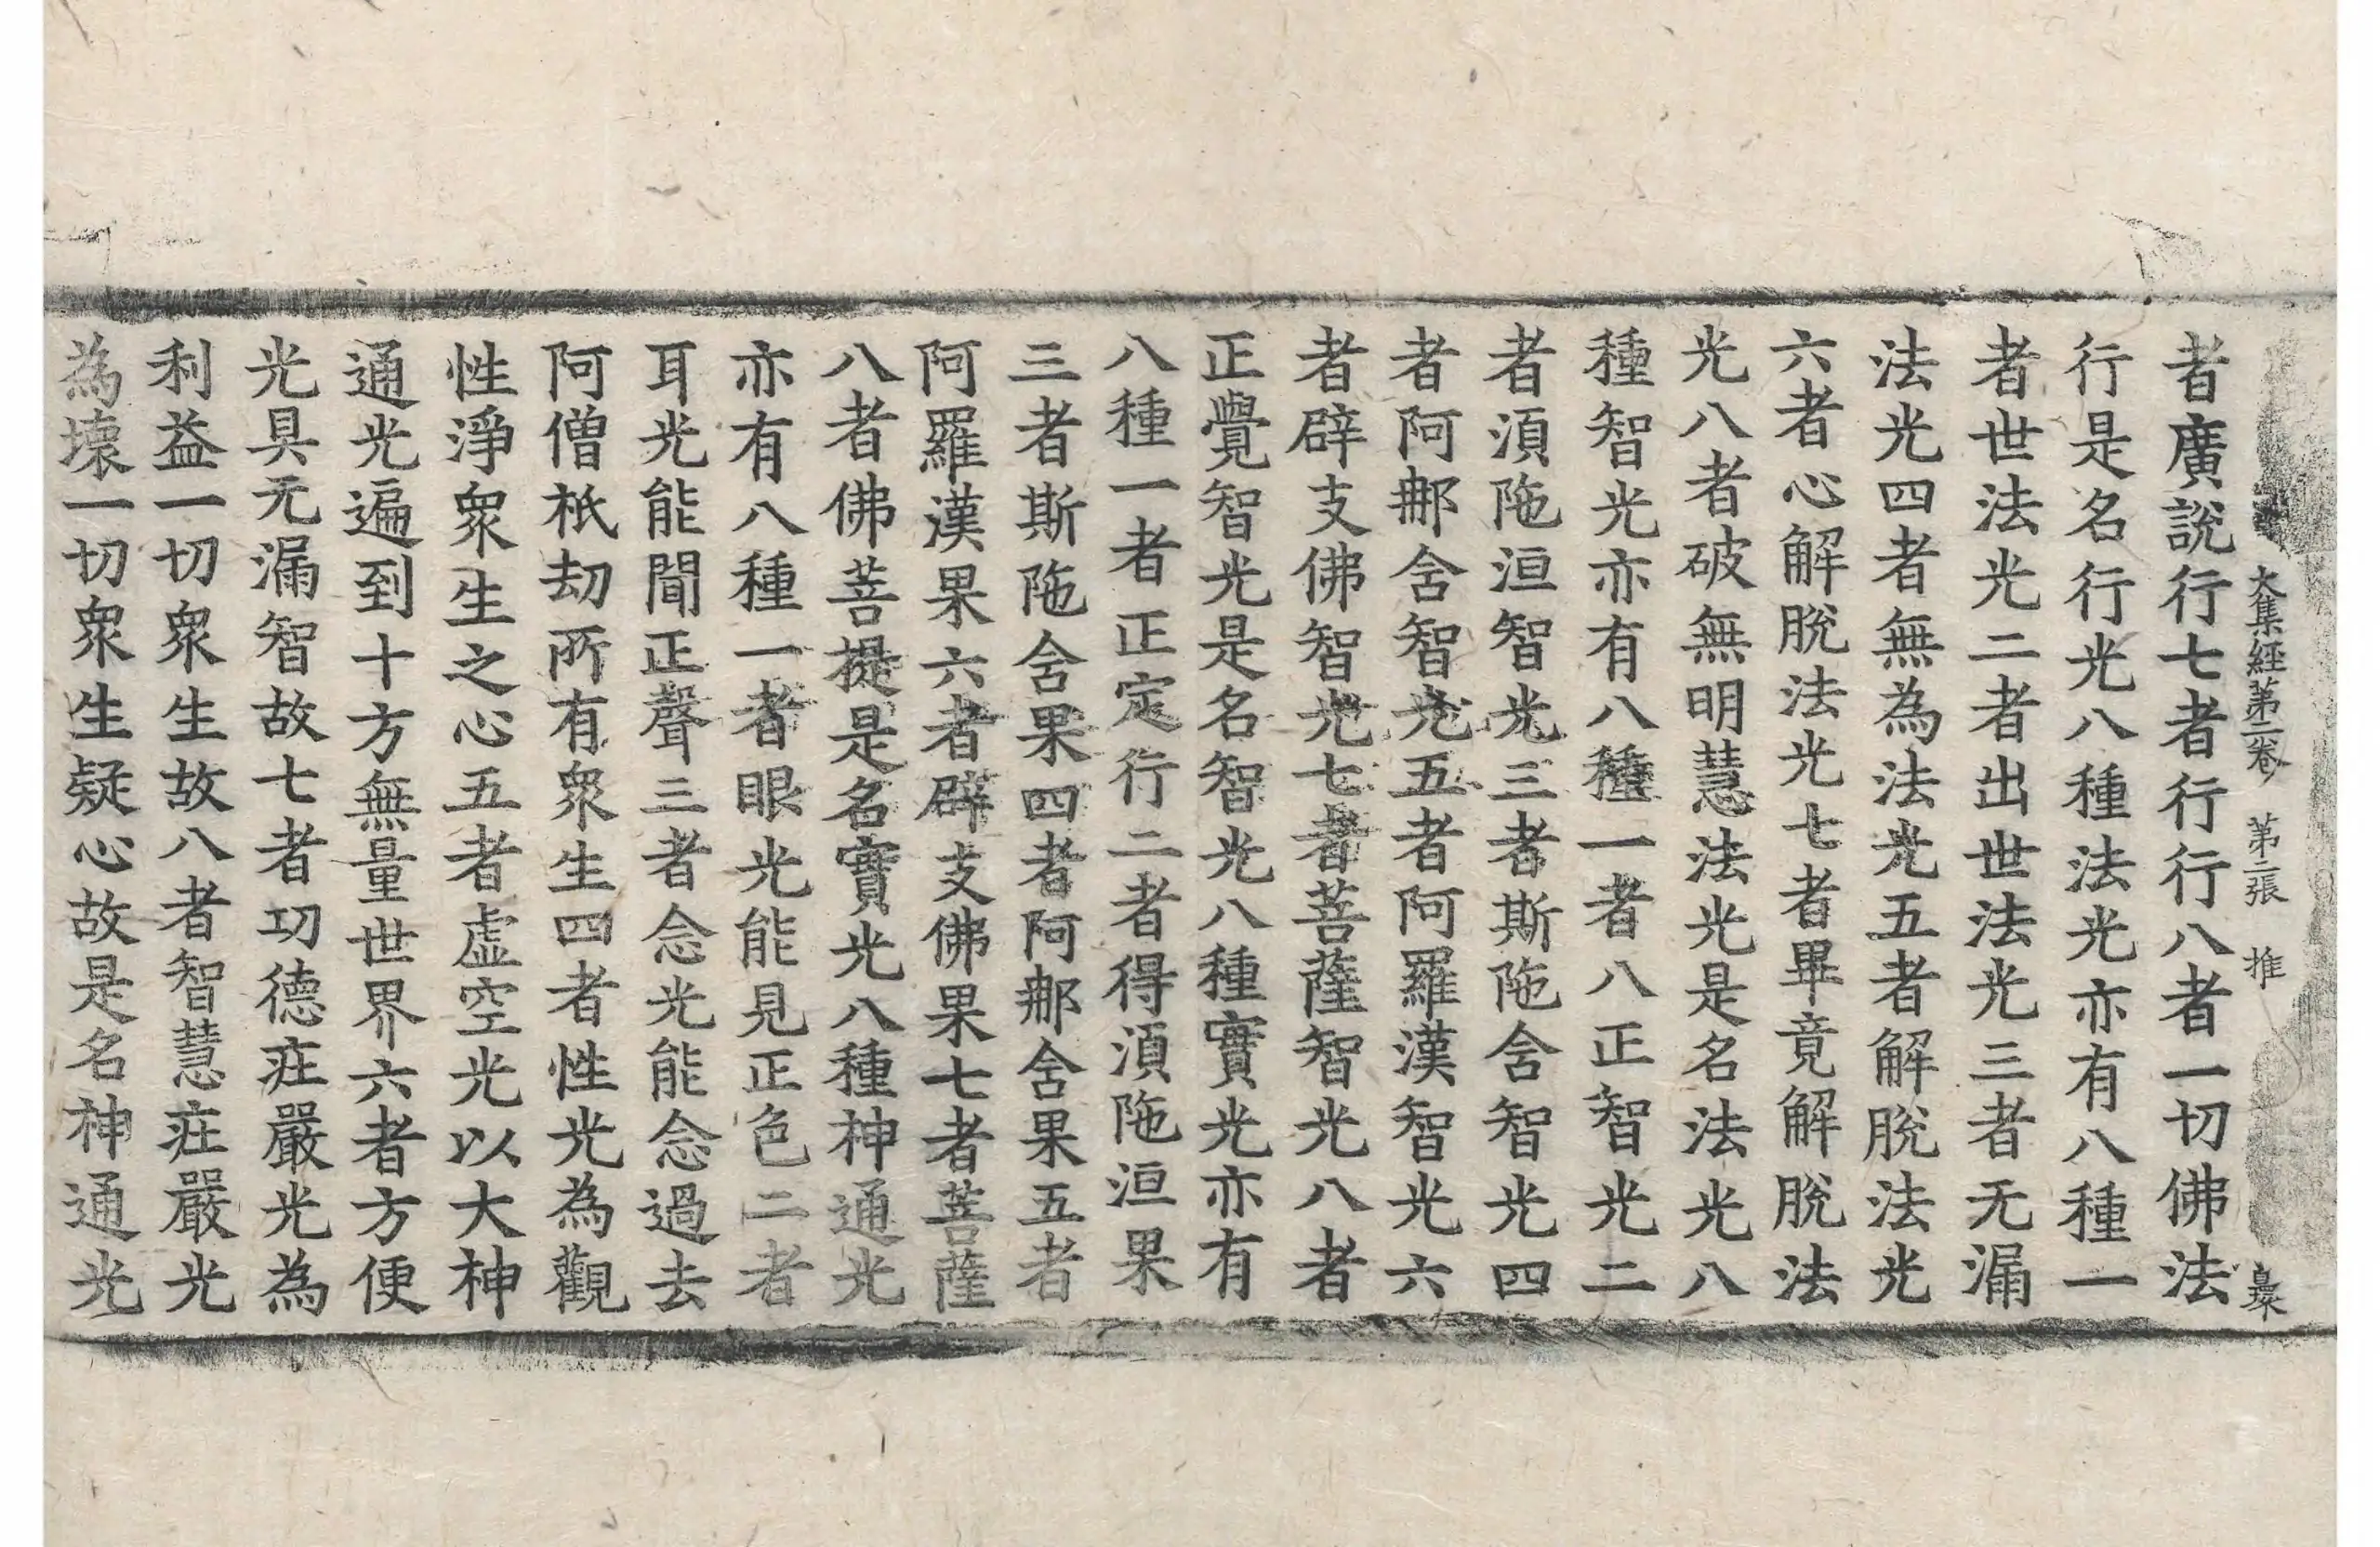 大集經第二卷 第二張 推
者廣說行七者行行八者一切佛法
行是名行行光八種法光亦有八種一
者世法光二者出世法光三者无漏
法光四者無為法光五者解脫法光
六者心解脫法光七者畢竟解脫法
光八者破無明慧法光是名法光光八
種智光亦有八種一者八正智光二
者湏陁洹智光三者斯陁含智光四
者阿那含智光五者阿羅漢智光六
者辟支佛智光七者菩薩智光八者
正覺智光是名智光八種實光亦有
八種一者正定行二者得湏陁洹果
三者斯陁含果四者阿那含果五者
阿羅漢果六者辟支佛果七者菩薩
八者佛菩提是名寶光八種神通光
亦有八種一者眼光能見正色二者
耳光能聞正聲三者念光能念過去
阿僧祇劫所有眾生四者性光為觀
性淨眾生之心五者虛空光以大神
通光遍到十方無量世界六者方便
光具无漏智故七者功德莊嚴光為
利益一切眾生故八者智慧莊嚴光
為壞一切眾生疑心故是名神通光